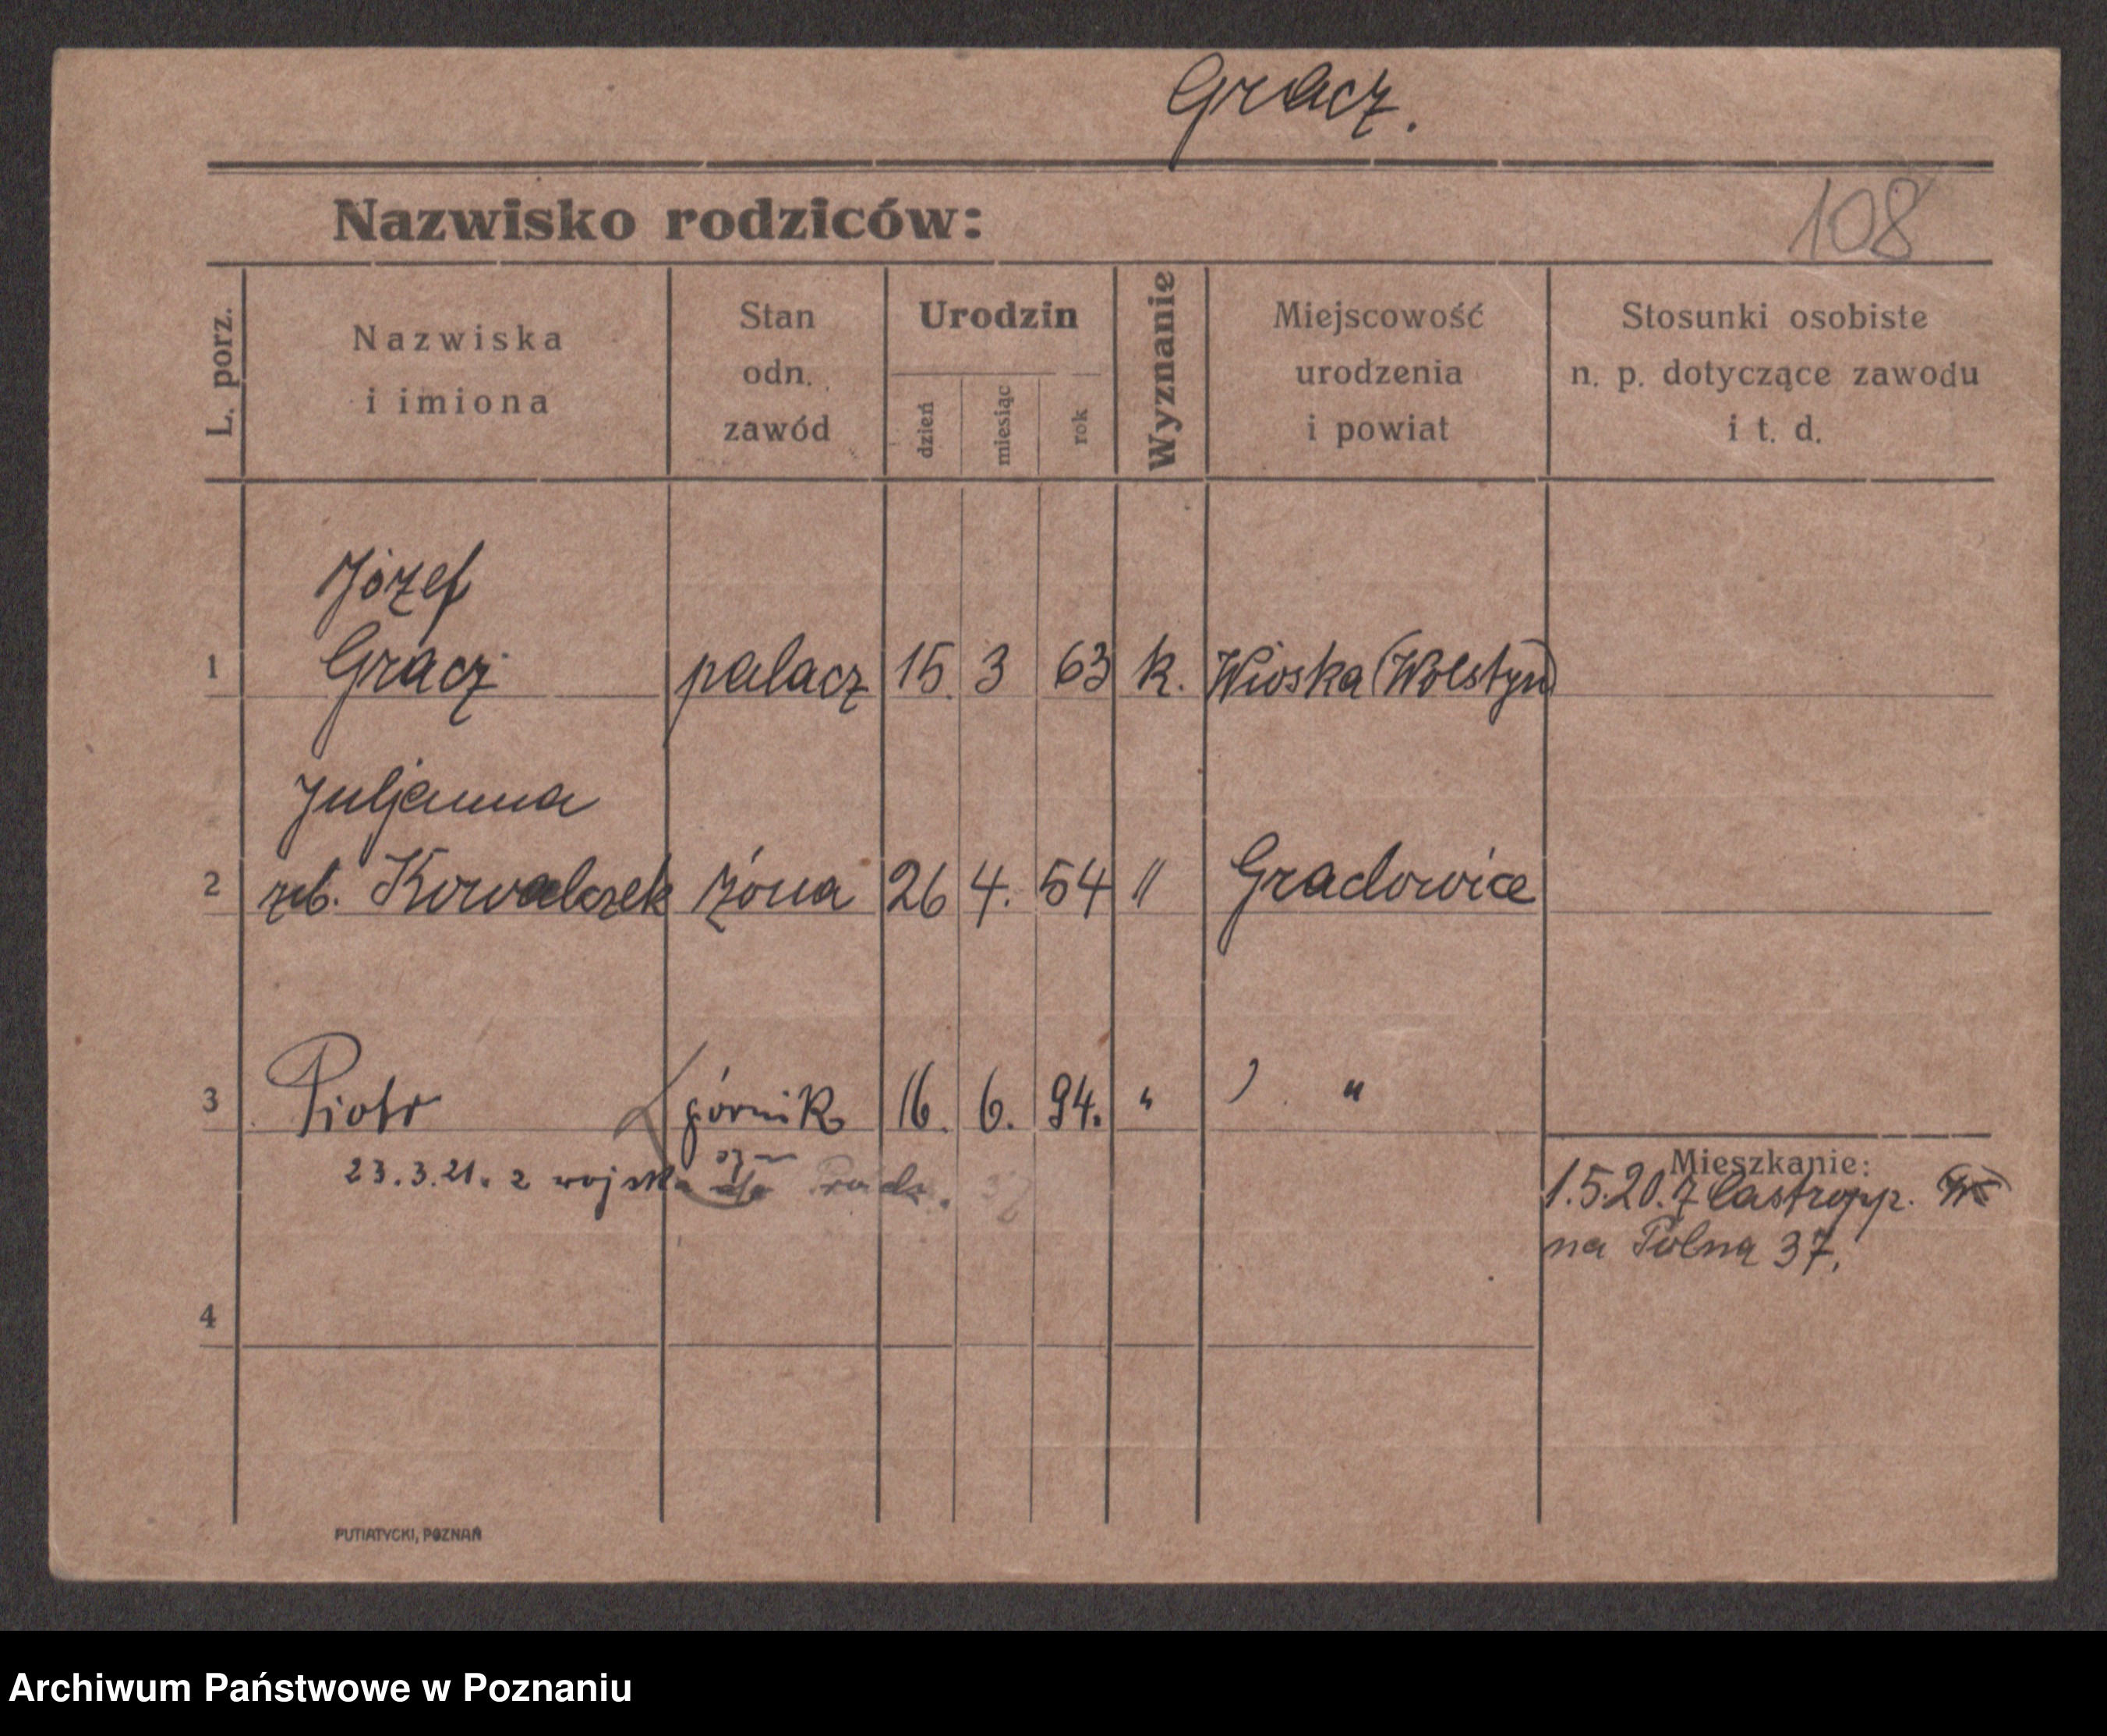 Gracz.
Nazwisko rodziców:
108
L. porz.
Nazwiska
i imiona
Stan
odn.
zawód
Urodzin
dzień
miesiąc
rok
Wyznanie
Miejscowość
urodzenia
i powiat
Stosunki osobiste
n. p. dotyczące zawodu
i t. d.
Józef
1 Gracz palacz 15. 3 63 k. Wioska (Wolstyn)
Juljanna
2 Kowalczek żona 26 4. 54 " Gradowice
3 Piotr górnik 16. 6. 94. " "
23.3.21. z wojska
Mieszkanie:
1.5.20. z Castropp.
na Polną 37.
4
PUTIATYCKI, POZNAŃ
Archiwum Państwowe w Poznaniu